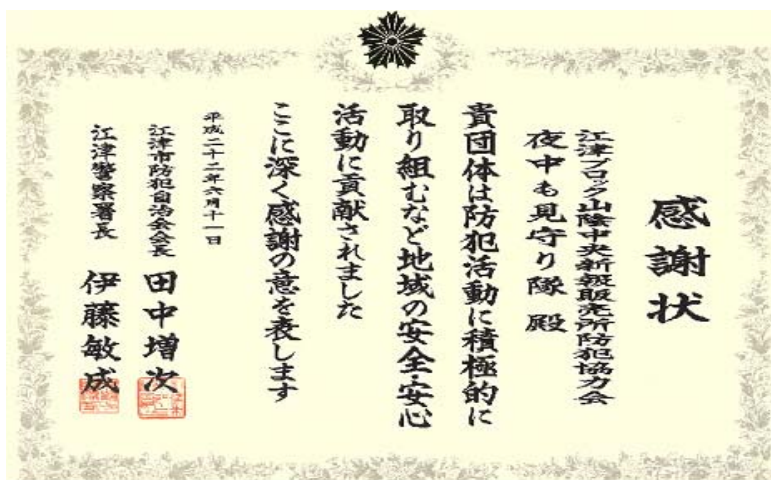 感謝状
江津ブロック山陰中央新報販売所防犯協力会
夜中も見守り隊 殿
貴団体は防犯活動に積極的に
取り組むなど地域の安全・安心
活動に貢献されました
ここに深く感謝の意を表します
平成二十二年六月十一日
江津市防犯自治会会長 田中増次
江津警察署長 伊藤敏成